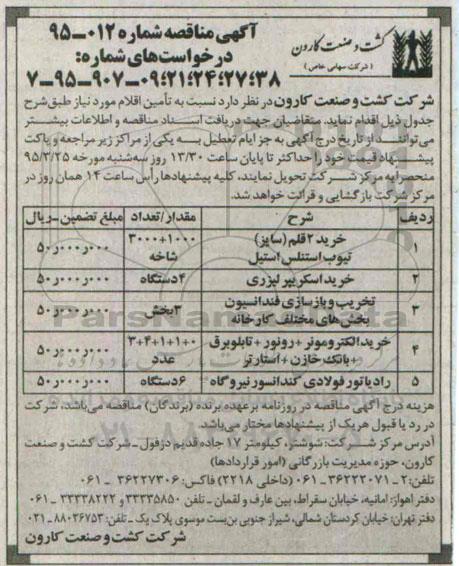 کشت و صنعت کارون
( شرکت سهامی خاص )
آگهی مناقصه شماره ۰۱۲-۹۵
درخواست‌های شماره:
۳۸؛۲۷؛۲۴؛۲۱؛۰۹-۹۰۷-۹۵-۷
شرکت کشت و صنعت کارون در نظر دارد نسبت به تأمین اقلام مورد نیاز طبق شرح
جدول ذیل اقدام نماید. متقاضیان جهت دریافت اسناد مناقصه و اطلاعات بیشتر
می‌توانند از تاریخ درج آگهی به جز ایام تعطیل به یکی از مراکز زیر مراجعه و پاکت
پیشنهاد قیمت خود را حداکثر تا پایان ساعت ۱۳/۳۰ روز سه‌شنبه مورخه ۹۵/۳/۲۵
منحصراً به مرکز شرکت تحویل نمایند، کلیه پیشنهادها رأس ساعت ۱۴ همان روز در
مرکز شرکت بازگشایی و قرائت خواهد شد.
ردیف شرح مقدار/تعداد مبلغ تضمین-ریال
۱ خرید ۲ قلم (سایز) تیوب استنلس استیل ۳۰۰۰۰+۱۰۰۰ شاخه ۵۰٫۰۰۰٫۰۰۰
۲ خرید اسکریپر لیزری ۴دستگاه ۵۰٫۰۰۰٫۰۰۰
۳ تخریب و بازسازی فندانسیون بخش‌های مختلف کارخانه ۳بخش ۵۰٫۰۰۰٫۰۰۰
۴ خرید الکتروموتور + روتور + تابلوبرق +بانک خازن + استارتر ۳+۴+۱+۱+۰ عدد ۵۰٫۰۰۰٫۰۰۰
۵ رادیاتور فولادی کندانسور نیروگاه ۶دستگاه ۵۰٫۰۰۰٫۰۰۰
هزینه درج آگهی مناقصه در روزنامه برعهده برنده (برندگان) مناقصه می‌باشد، شرکت
در رد یا قبول هر یک از پیشنهادها مختار می‌باشد.
آدرس مرکز شرکت: شوشتر، کیلومتر ۱۷ جاده قدیم دزفول - شرکت کشت و صنعت
کارون، حوزه مدیریت بازرگانی (امور قراردادها)
تلفن: ۲-۳۶۲۲۳۰۷۱-۰۶۱ (داخلی ۲۲۱۸) فاکس: ۳۶۲۲۷۳۰۶-۰۶۱
دفتر اهواز: امانیه، خیابان سقراط، بین عارف و لقمان - تلفن ۳۳۳۳۵۸۵۰ و ۳۳۳۳۸۲۲۲-۰۶۱
دفتر تهران: خیابان کردستان شمالی، شیراز جنوبی بن‌بست موسوی پلاک یک - تلفن: ۸۸۰۳۶۷۵۳-۰۲۱
شرکت کشت و صنعت کارون